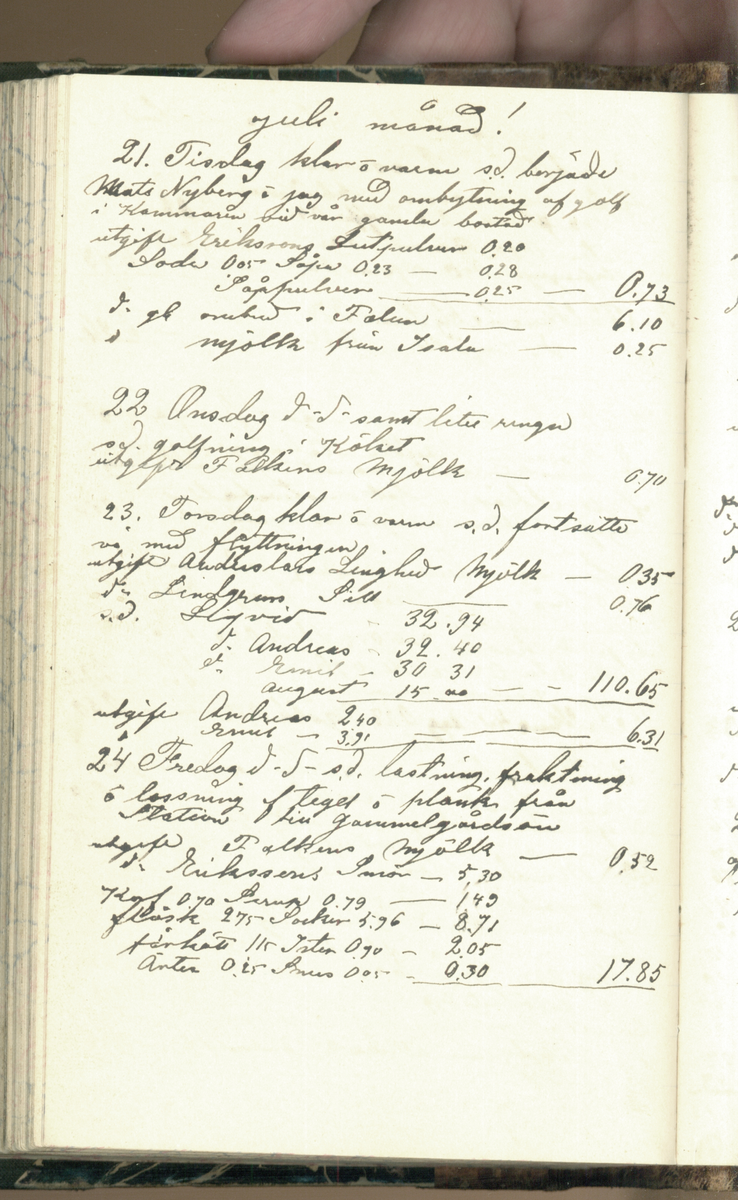 Juli månad!
21. Tisdag klar o varm s.d. började
Mats Nyberg o jag med ombytning af golf
i Kammaren vid vår gamla bostad
utgift Eriksons Lutpulver 0.20
Soda 0.05 Såpa 0.23 — 0.28
Såppulver — 0.25 — 0.73
d. gl ombud i Falun — 6.10
d mjölk från Isala — 0.25
22 Onsdag d-d- samt litet rengn
s.d. golfning i Köket
utgift Falkens Mjölk — 0.70
23. Torsdag klar o varm s.d. fortsatte
vi med flyttningen
utgift Anderslars Linghed Mjölk — 0.35
d. Lindgrens Sill — 0.76
s.d. Liqvid 32.94
d. Andreas - 32.40
d. Emil - 30 31
August 15.00 — - 110.65
utgift Andreas 2.40
d Emil - 3.91 — 6.31
24 Fredag d-d- s.d. lastning, fraktning
o lossning af tegel o plank från
Station till Gammelgårdsön
utgift Falkens Mjölk — 0.52
d. Erikssons Smör - 5.30
Korf 0.70 Sirup 0.79 — 1.49
fläsk 2.75 Socker 5.96 - 8.71
fårkött 1.15 Ister 0.90 - 2.05
Ärter 0.25 Snus 0.05 - 0.30 17.85